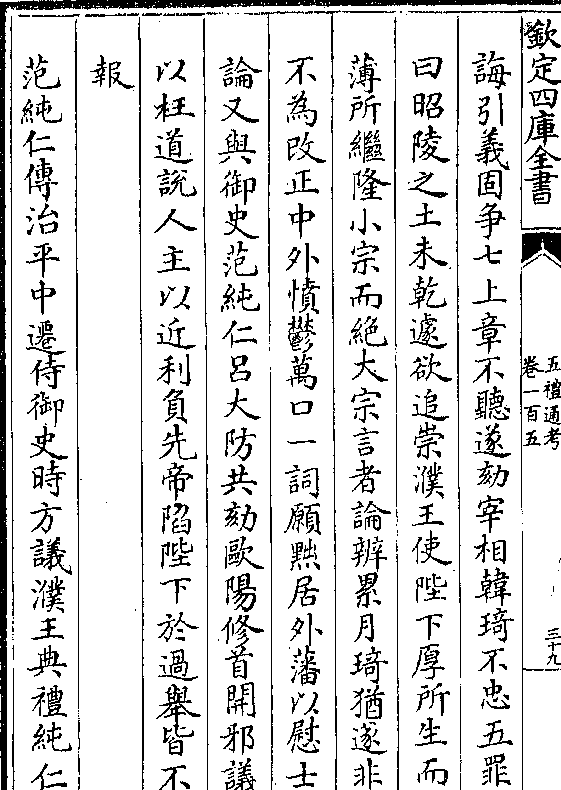 欽定四庫全書
五禮通考
卷一百五
三十九
誨引義固爭七上章不聽遂劾宰相韓琦不忠五罪
曰昭陵之土未乾遽欲追崇濮王使陛下厚所生而
薄所繼隆小宗而絕大宗言者論辨累月琦猶遂非
不為改正中外憤鬱萬口一詞願黜居外藩以慰士
論又與御史范純仁吕大防共劾歐陽修首開邪議
以枉道說人主以近利負先帝陷陛下於過舉皆不
報
范純仁傳治平中遷侍御史時方議濮王典禮純仁